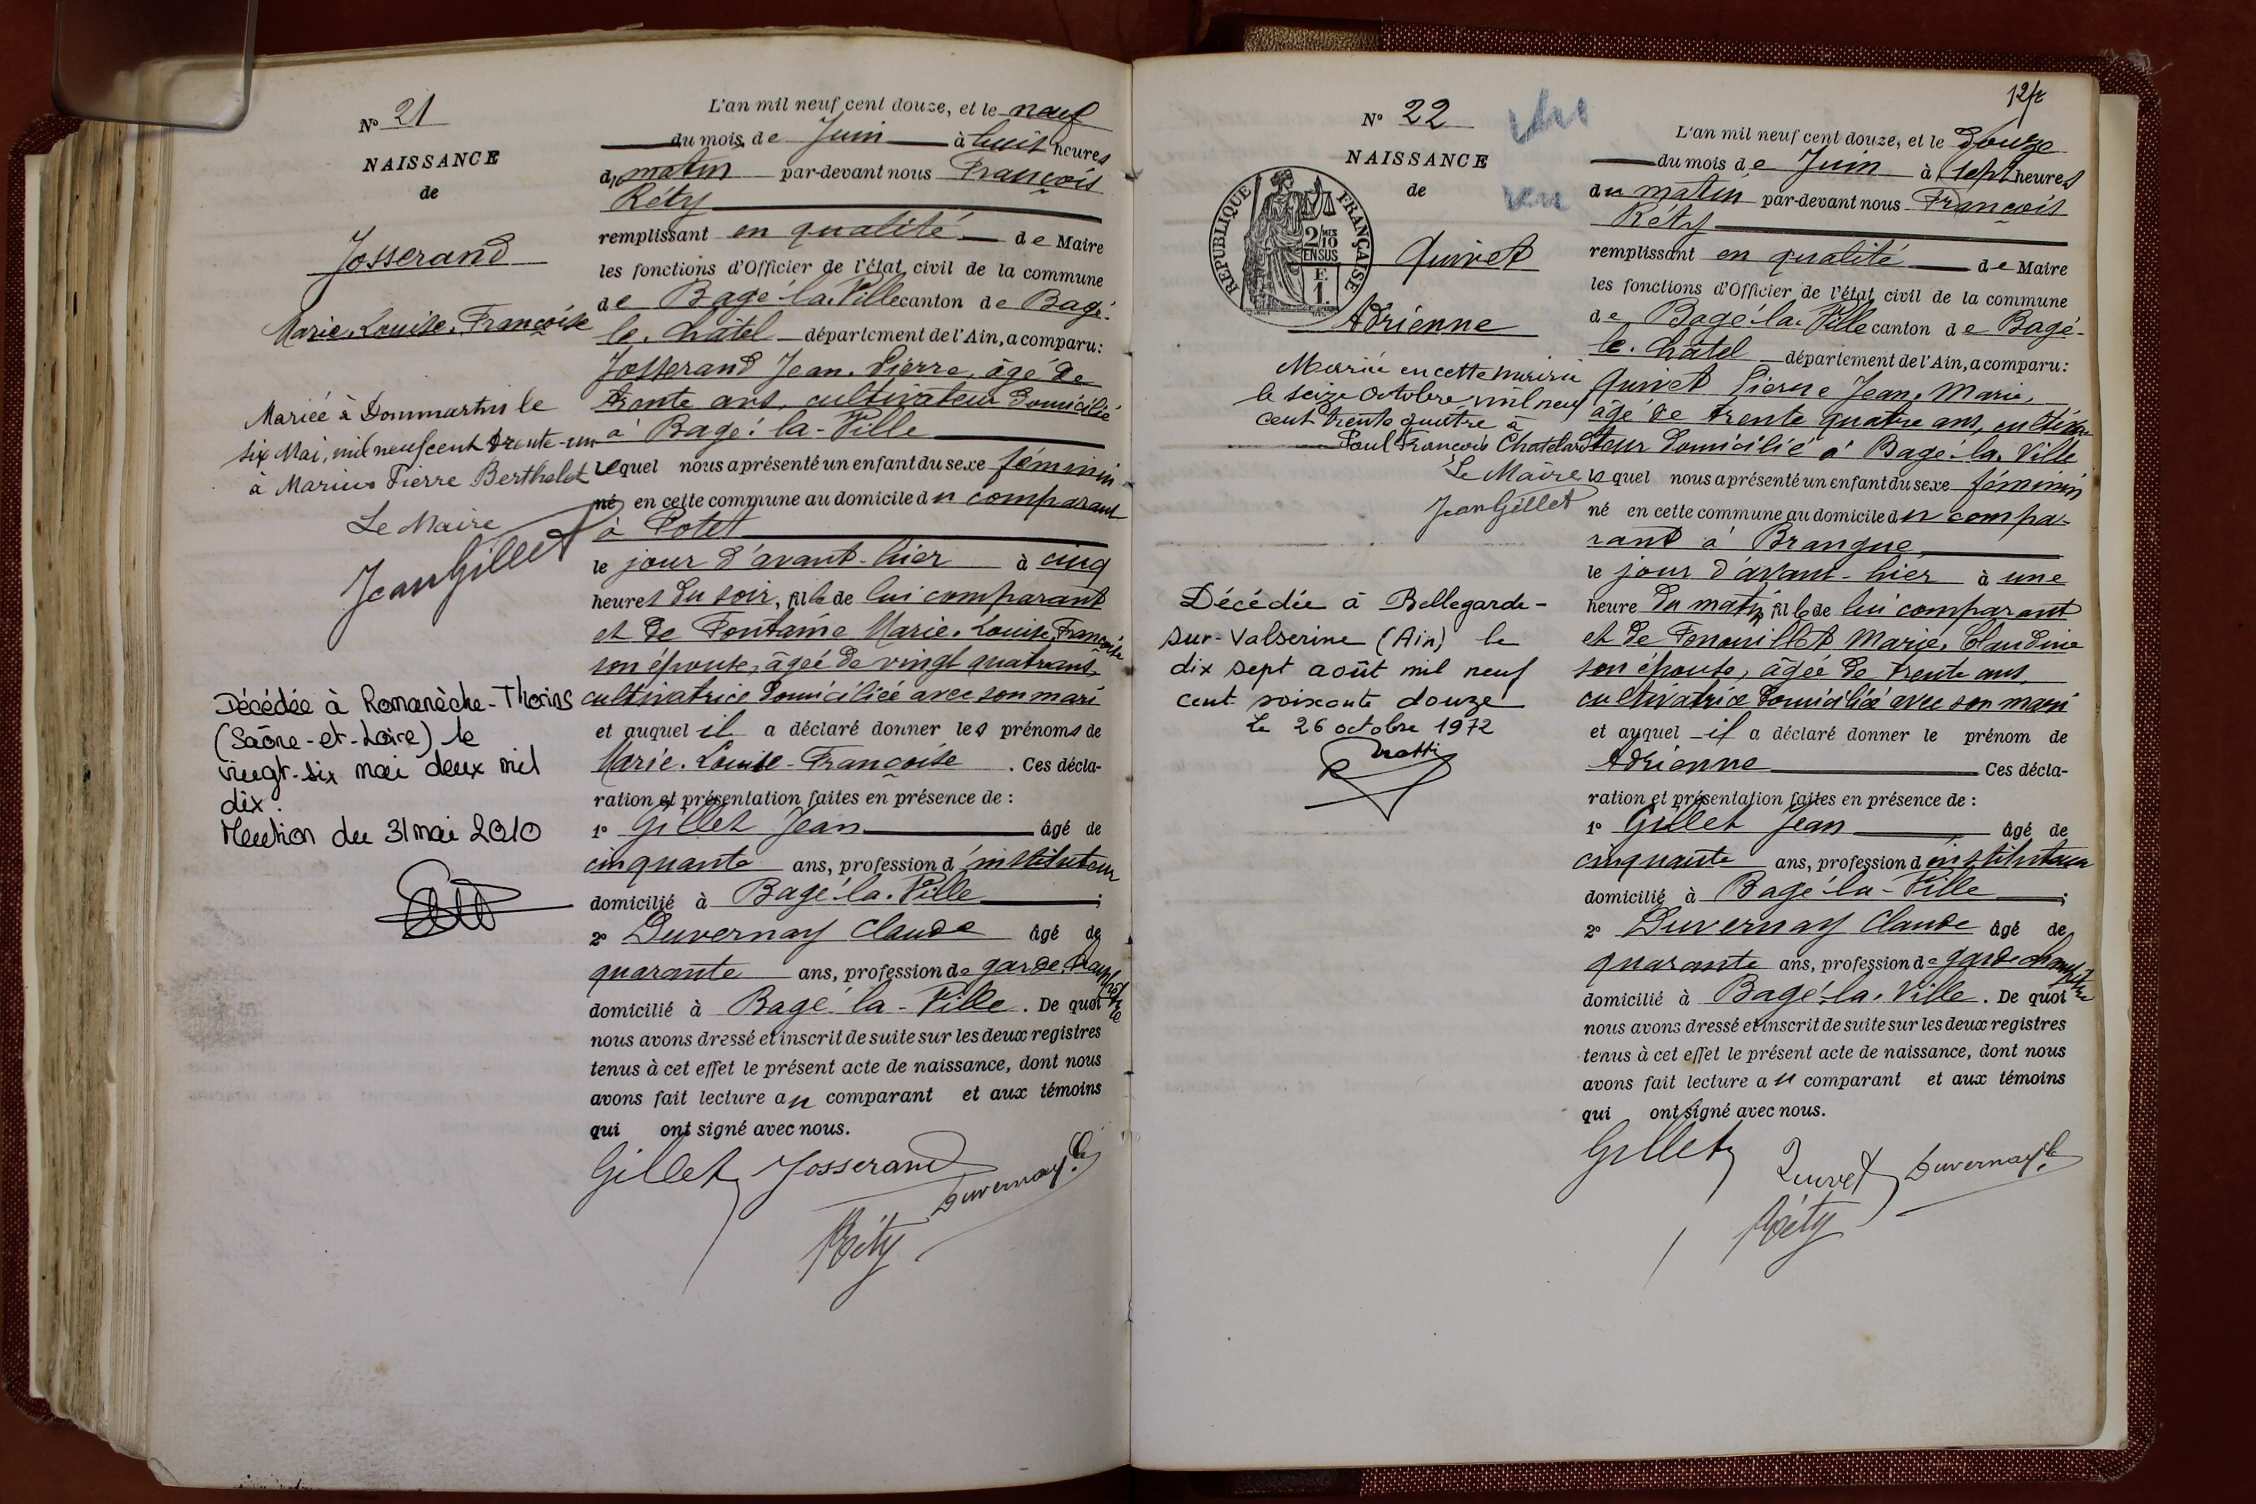 Nº 21
NAISSANCE
de
Josserand
Marie. Louise. Françoise
Mariée à Dommartin le
six Mai, mil neuf cent trente-un
à Marius Pierre Berthelet
Le Maire
Jean Gillet
Décédée à Romanèche-Thorins
(Saône-et-Loire) le
vingt-six mai deux mil
dix.
Mention du 31 mai 2010
L'an mil neuf cent douze, et le neuf
du mois de Juin à huit heures
du matin par-devant nous François
Réty
remplissant en qualité de Maire
les fonctions d'Officier de l'état civil de la commune
de Bagé-la-Ville canton de Bagé-
le-Châtel département de l'Ain, a comparu:
Josserand Jean. Pierre, âgé de
trente ans, cultivateur domicilié
à Bagé-la-Ville
lequel nous a présenté un enfant du sexe féminin
né en cette commune au domicile du comparant
à Potet
le jour d'avant-hier à cinq
heures du soir, fille de lui comparant
et de Fontaine Marie. Louise Françoise
son épouse, âgée de vingt quatre ans,
cultivatrice domiciliée avec son mari
et auquel il a déclaré donner les prénoms de
Marie. Louise-Françoise. Ces décla-
ration et présentation faites en présence de :
1º Gillet Jean âgé de
cinquante ans, profession d'instituteur
domicilié à Bagé-la-Ville ;
2º Duvernay Claude âgé de
quarante ans, profession de garde champêtre
domicilié à Bagé-la-Ville. De quoi
nous avons dressé et inscrit de suite sur les deux registres
tenus à cet effet le présent acte de naissance, dont nous
avons fait lecture au comparant et aux témoins
qui ont signé avec nous.
Gillet Josserand Duvernay Cl
Réty
12
Nº 22
NAISSANCE
de
REPUBLIQUE FRANÇAISE
2/10 EN SUS
Quivet
Adrienne
Mariée en cette mairie
le seize Octobre mil neuf
cent trente quatre à
Paul François Chatelard
Le Maire
Jean Gillet
Décédée à Bellegarde-
sur-Valserine (Ain) le
dix sept août mil neuf
cent soixante douze
Le 26 octobre 1972
L'an mil neuf cent douze, et le douze
du mois de Juin à sept heures
du matin par-devant nous François
Réty
remplissant en qualité de Maire
les fonctions d'Officier de l'état civil de la commune
de Bagé-la-Ville canton de Bagé-
le-Châtel département de l'Ain, a comparu:
Quivet Pierre Jean, Marie,
âgé de trente quatre ans, cultiva-
teur domicilié à Bagé-la-Ville
lequel nous a présenté un enfant du sexe féminin
né en cette commune au domicile du compa-
rant à Brangue
le jour d'avant-hier à une
heure du matin fille de lui comparant
et de Fenouillet Marie, Claudine
son épouse, âgée de trente ans
cultivatrice domiciliée avec son mari
et auquel il a déclaré donner le prénom de
Adrienne Ces décla-
ration et présentation faites en présence de :
1º Gillet Jean âgé de
cinquante ans, profession d'instituteur
domicilié à Bagé-la-Ville ;
2º Duvernay Claude âgé de
quarante ans, profession de garde champêtre
domicilié à Bagé-la-Ville. De quoi
nous avons dressé et inscrit de suite sur les deux registres
tenus à cet effet le présent acte de naissance, dont nous
avons fait lecture au comparant et aux témoins
qui ont signé avec nous.
Gillet Quivet Duvernay Cl
Réty